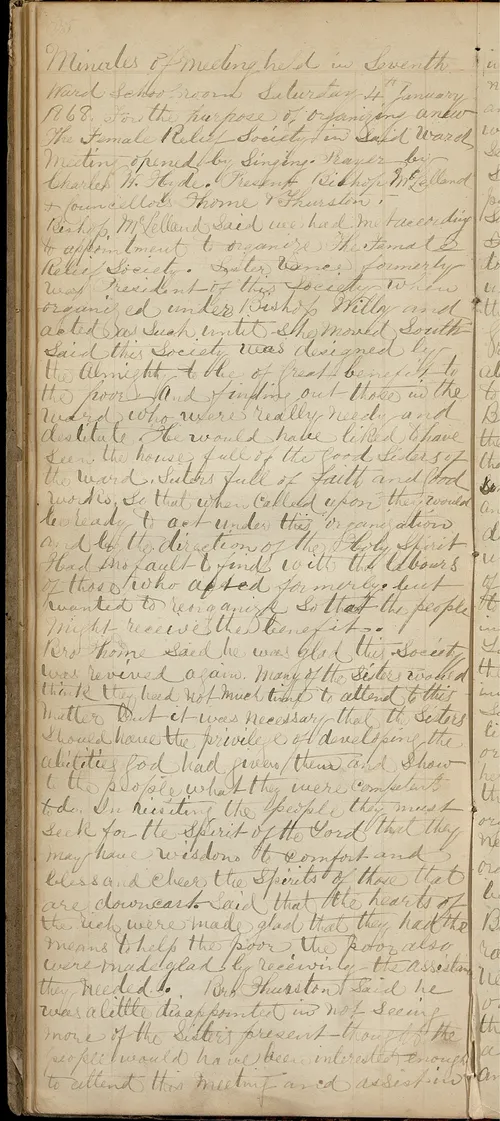 Minutes of meeting held in Seventh
Ward School room Saturday 4th January
1868. For the purpose of organizing anew
The Female Relief Society in Said Ward
Meeting opened by Singing. Prayer by
Charles W. Hyde. Present Bishop McLelland
& Councillors Thorne & Thurston.
Bishop McLelland Said we had met according
to appointment to organize The Female
Relief Society. Sister Vance formerly
was President of this Society when
organized under Bishop Willy and
acted as such until She moved South
Said this Society was designed by
the Almighty to be of great benefit to
the poor And finding out those in the
ward who were really needy and
destitute He would have liked to have
Seen the house full of the Good Sisters of
the ward. Sisters full of faith and Good
works, So that when called upon they would
be ready to act under this organization
and by the direction of the Holy Spirit
Had no fault to find with the labours
of those who acted formerly. but
wanted to reorganize So that the people
might receive the benefit.
Bro Thorne Said he was glad this Society
was revived again. Many of the Sisters would
think they had not much time to attend to this
matter But it was necessary that the Sisters
Should have the privilege of developing the
abilities God had given them and Show
to the people what they were competant
to do. In visiting the people they must
Seek for the Spirit of the Lord that they
may have wisdom to comfort and
bless and cheer the Spirits of those that
are downcast Said that the hearts of
the rich were made glad that they had the
means to help the poor the poor also
were made glad by receiving the assistan
they needed. Bro Thurston Said he
was a little disappointed in not Seeing
more of the Sisters present - thought the
people would have been interested enough
to attend this Meeting and assist in